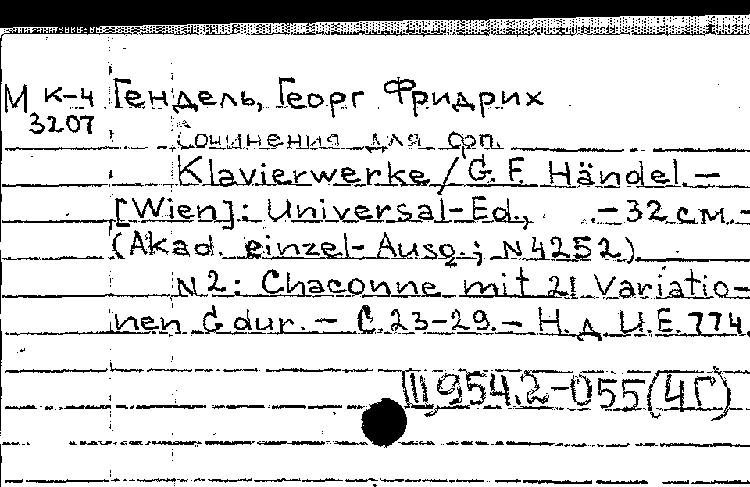 М К-4 Гендель, Георг Фридрих
3207
Сочинения для фп.
Klavierwerke / G. F. Händel. –
[Wien]: Universal-Ed., . – 32 см. –
(Akad. einzel-Ausg.; N 4252).
N 2: Chaconne mit 21 Variatio-
nen G dur. – С. 23-29. – Н. д. U.E. 774.
Ш954.2-055(4Г)